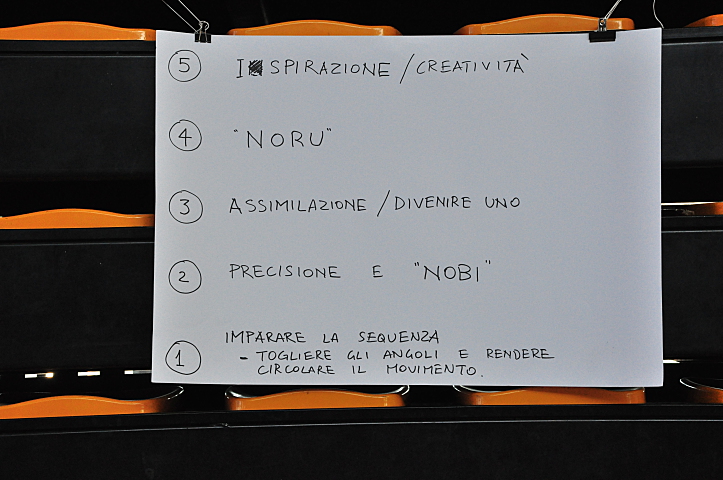 5 I SPIRAZIONE / CREATIVITÀ
4 "NORU"
3 ASSIMILAZIONE / DIVENIRE UNO
2 PRECISIONE E "NOBI"
1 IMPARARE LA SEQUENZA
- TOGLIERE GLI ANGOLI E RENDERE
CIRCOLARE IL MOVIMENTO.